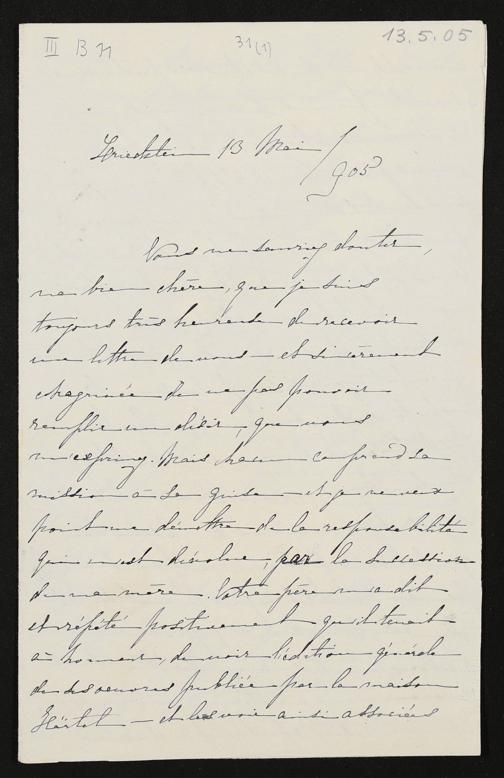 III B 71
31(1)
13.5.05
Friedstein 13 Mai / 905
Vous ne sauriez douter,
ma bien chère, que je suis
toujours très heureuse de recevoir
une lettre de vous – et sincèrement
chagrinée de ne pas pouvoir
remplir un désir, que vous
m'exprimez. Mais chacun comprend sa
mission à sa guise – et je ne veux
point me démettre de la responsabilité
qui m'est dévolue, par la succession
de ma mère. Votre père m'a dit
et répété positivement qu'il tenait
à honneur, de voir l'édition générale
de ses oeuvres publiée par la maison
Härtel – et les voir ainsi associées